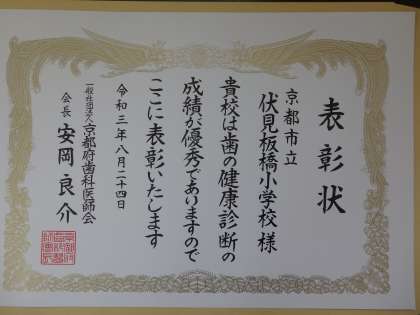 表彰状
京都市立
伏見板橋小学校様
貴校は歯の健康診断の
成績が優秀でありますので
ここに表彰いたします
令和三年八月二十四日
一般社団法人京都府歯科医師会
会長 安岡良介